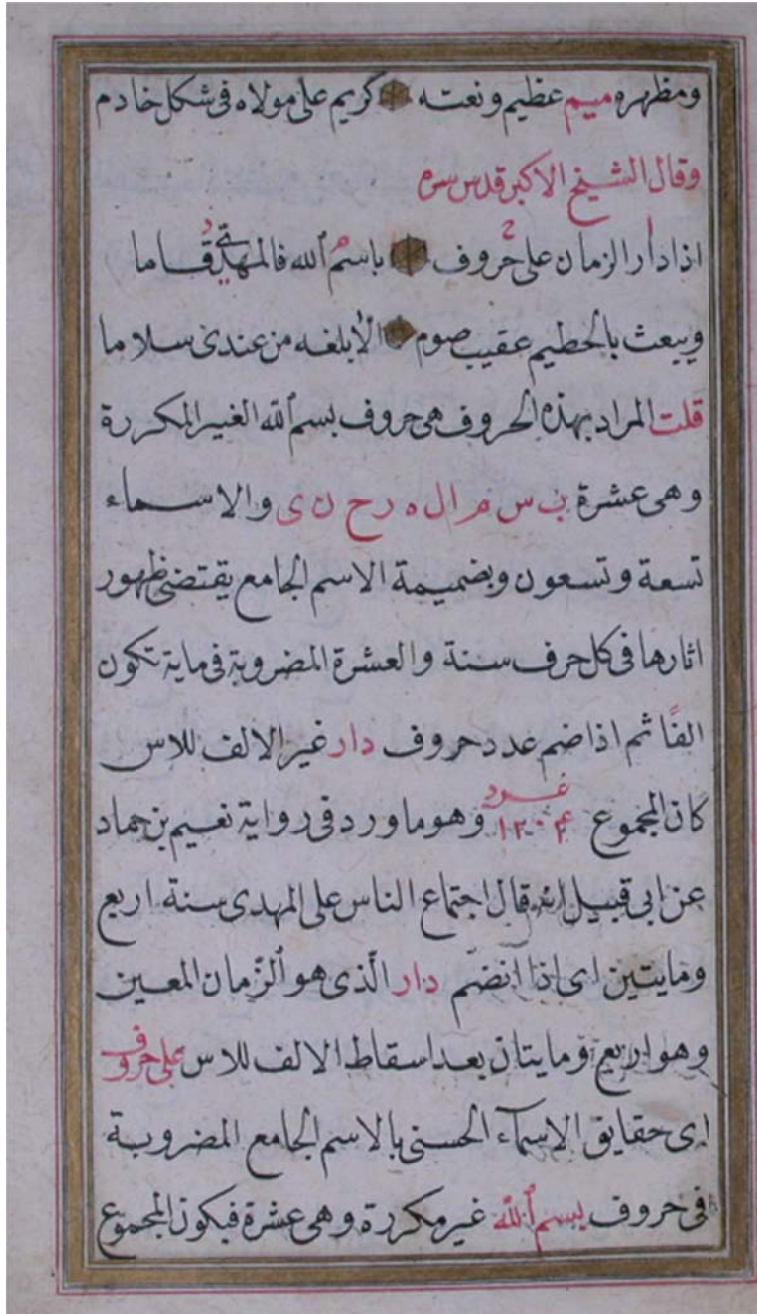 ومظهره ميم عظيم ونعته كريم على مولاه فى شكل خادم
وقال الشيخ الاكبر قدس سره
اذا دار الزمان على حروف باسم الله فالمهدى قاما
ويبعث بالحطيم عقيب صوم الا بلغه من عندى سلاما
قلت المراد بهذه الحروف هى حروف بسم الله الغير المكررة
وهى عشرة ب س م ا ل ه ر ح ن ى والاسماء
تسعة وتسعون وبضميمة الاسم الجامع يقتضى ظهور
اثارها فى كل حرف سنة والعشرة المضروبة فى ماية تكون
الفًا ثم اذا ضم عدد حروف دار غير الالف للاس
كان المجموع ١٢٠٤ وهو ما ورد فى رواية نعيم بن حماد
عن ابى قبيل انه قال اجتماع الناس على المهدى سنة اربع
ومايتين اى اذا انضم دار الّذى هو الزّمان المعين
وهو اربع ومايتان بعد اسقاط الالف للاس على حروف
اى حقايق الاسمآء الحسنى بالاسم الجامع المضروبة
فى حروف بسم اللّه غير مكررة وهى عشرة فيكون المجموع